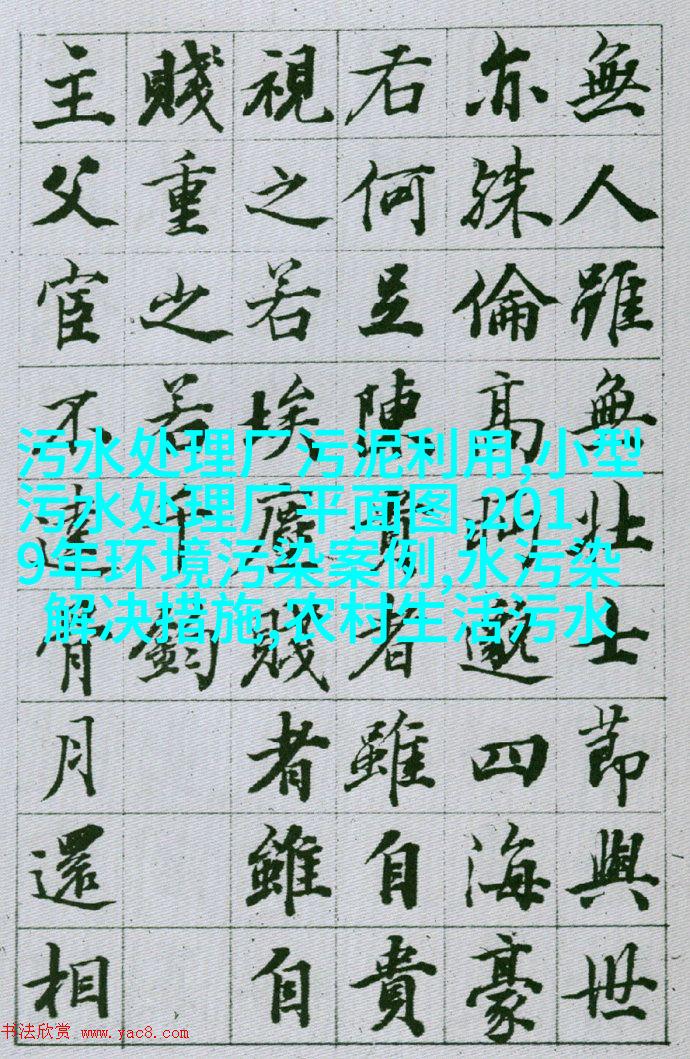 無人雖無壯士節與世
亦殊倫高眄邈四海豪
右何足陳貴者雖自貴
視之若埃塵賤者雖自
賤重之若千鈞
主父宦不達骨月還相
污水处理厂污泥利用,小型
污水处理厂平面图,201
9年环境污染案例,水污染
解决措施,农村生活污水
书法欣赏 www.yac8.com